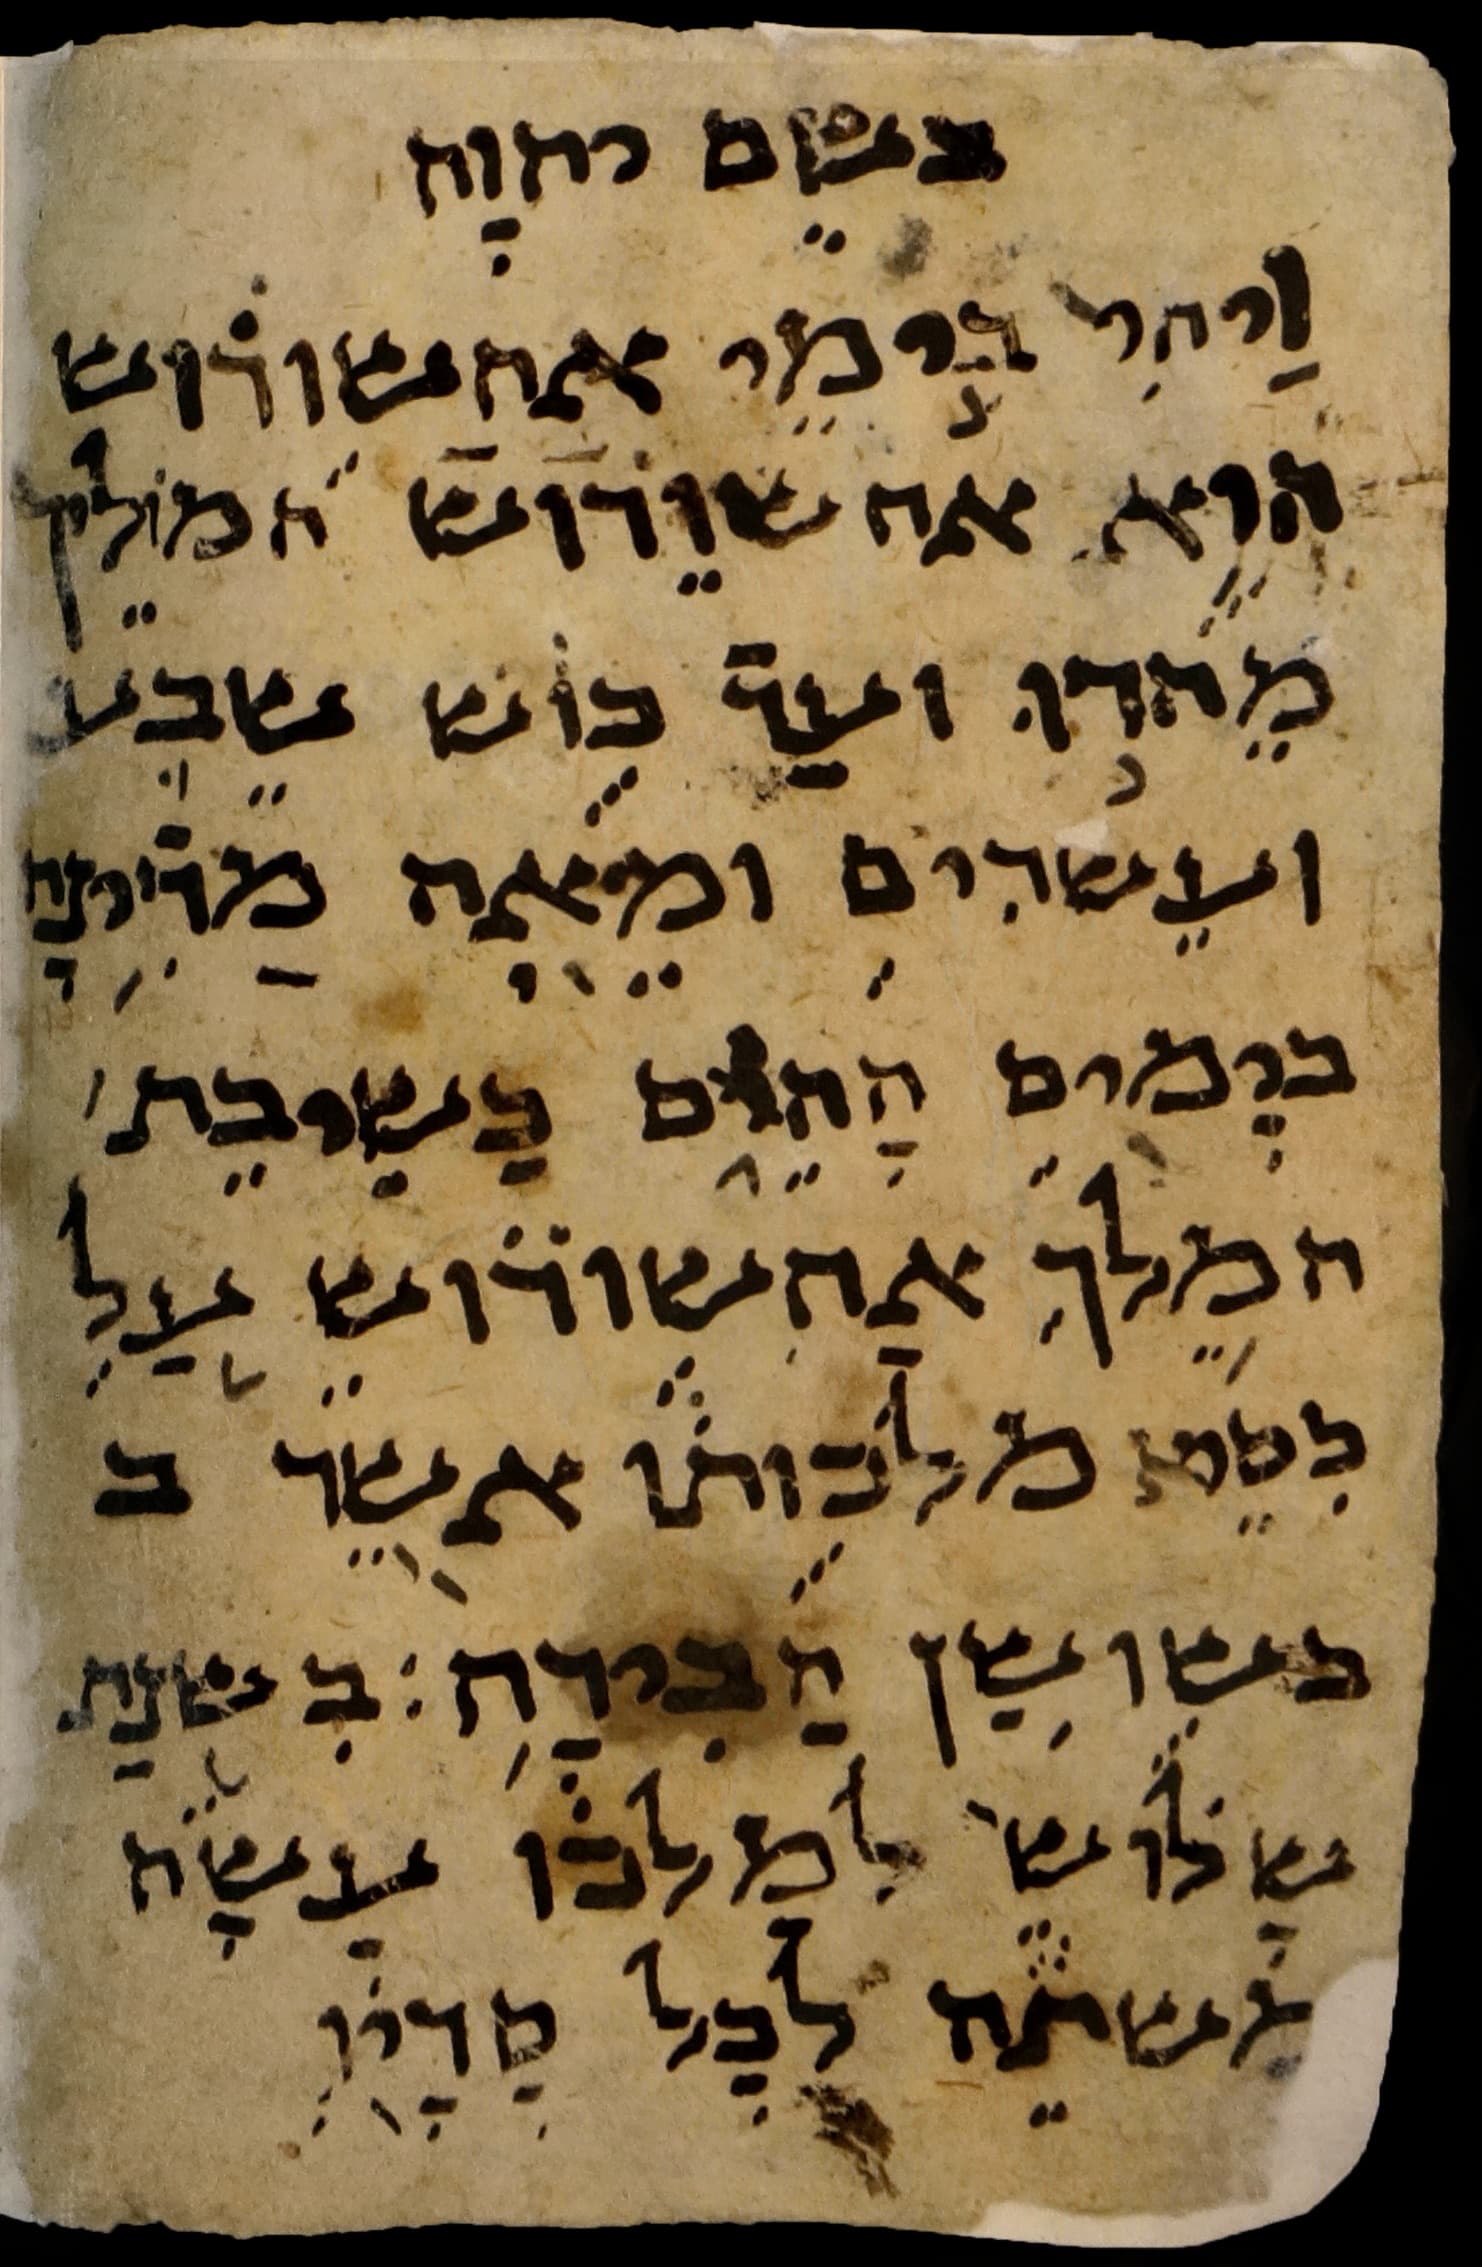 בשֵם יהוָה
וַיהִי בִימֵי אחַשורֹוש
הוּא אחַשוֵרֹוש המֹלֵך
מֵהֹדוּ ועַד כּוש שֵבַע
ועֵשרִים ומֵאָה מַדִינָה
בַיָמים הָהֵם כַשָיבֵת
המֵלך אַחַשורֹוש עַל
כִסֵא מלכותֹו אשֵר ב
בשושַן הַבִירָה : בִשנַת
שָלֹוש למָלכֹו עָשָה
מִשתֵה לכָל שָרָיו